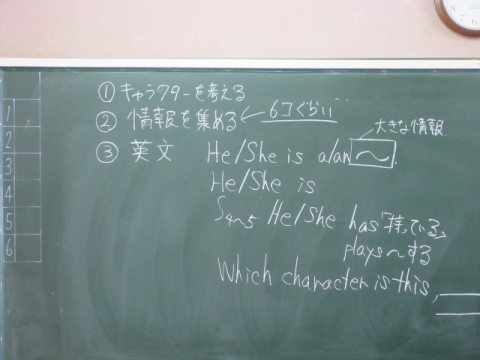 ① キャラクターを考える
② 情報を集める ← 6コぐらい
大きな情報
③ 英文 He/She is a/an 〜.
He/She is
S4~5 He/She has 「持っている」
plays 〜する
Which character is this,
1
2
3
4
5
6